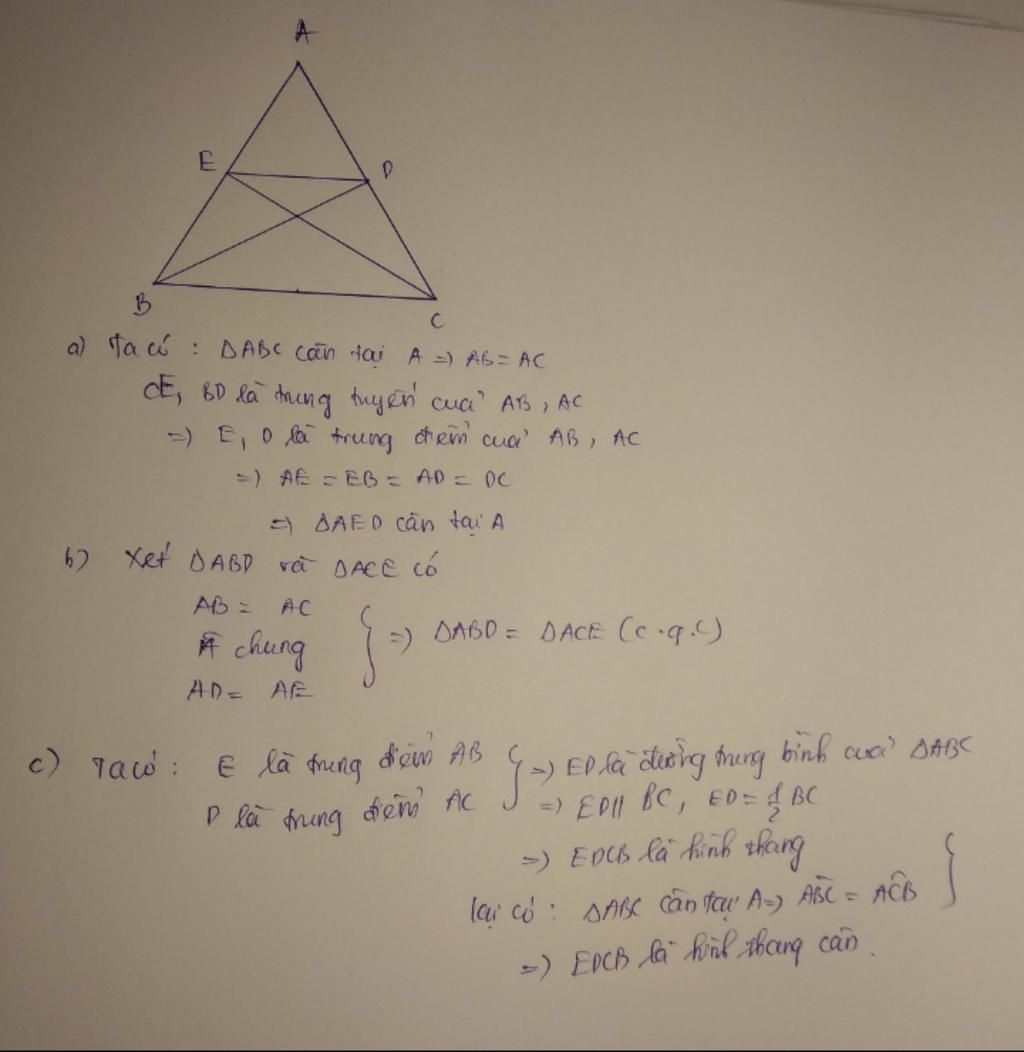 A
E
D
B
C
a) Ta có : ΔABC cân tại A => AB = AC
CE, BD là trung tuyến của AB, AC
=> E, D là trung điểm của AB, AC
=> AE = EB = AD = DC
=> ΔAED cân tại A
b) Xét ΔABD và ΔACE có
AB = AC
 chung
AD = AE
} => ΔABD = ΔACE (c.g.c)
c) Ta có : E là trung điểm AB
D là trung điểm AC
} => ED là đường trung bình của ΔABC
=> ED // BC, ED = 1/2 BC
=> EDCB là hình thang
lại có : ΔABC cân tại A => ABC = ACB }
=> EDCB là hình thang cân.